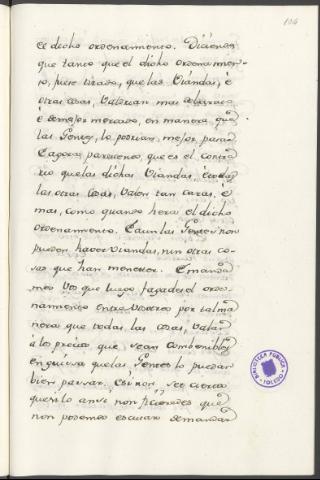 104
el dicho ordenamiento. Diciendo
que tanto que el dicho ordenamien-
to, fuese tirado, que las Viandas, é
otras cosas, Valdrian mas de barato
é de mejor mercado, en manera que
las Gentes, lo podrian, mejor pasar
E agora parescenos, que es el contra
rio que las dichas Viandas, é todas
las otras Cosas, Valen tan caras, é
mas, como quando hera el dicho
ordenamiento. E aun las Gentes non
pueden haver Viandas, nin otras co-
sas que han menester. E manda
mos Vos que luego fagades el orde-
namiento entre Vosotros por tal ma
nera que todas las cosas, Valan
á los precios que sean combenibles
en guisa que las Gentes lo puedan
bien pasar. E si non, sed ciertos
que si lo ansi non ficieredes que
non podemos escusar de mandar
BIBLIOTECA PUBLICA
TOLEDO